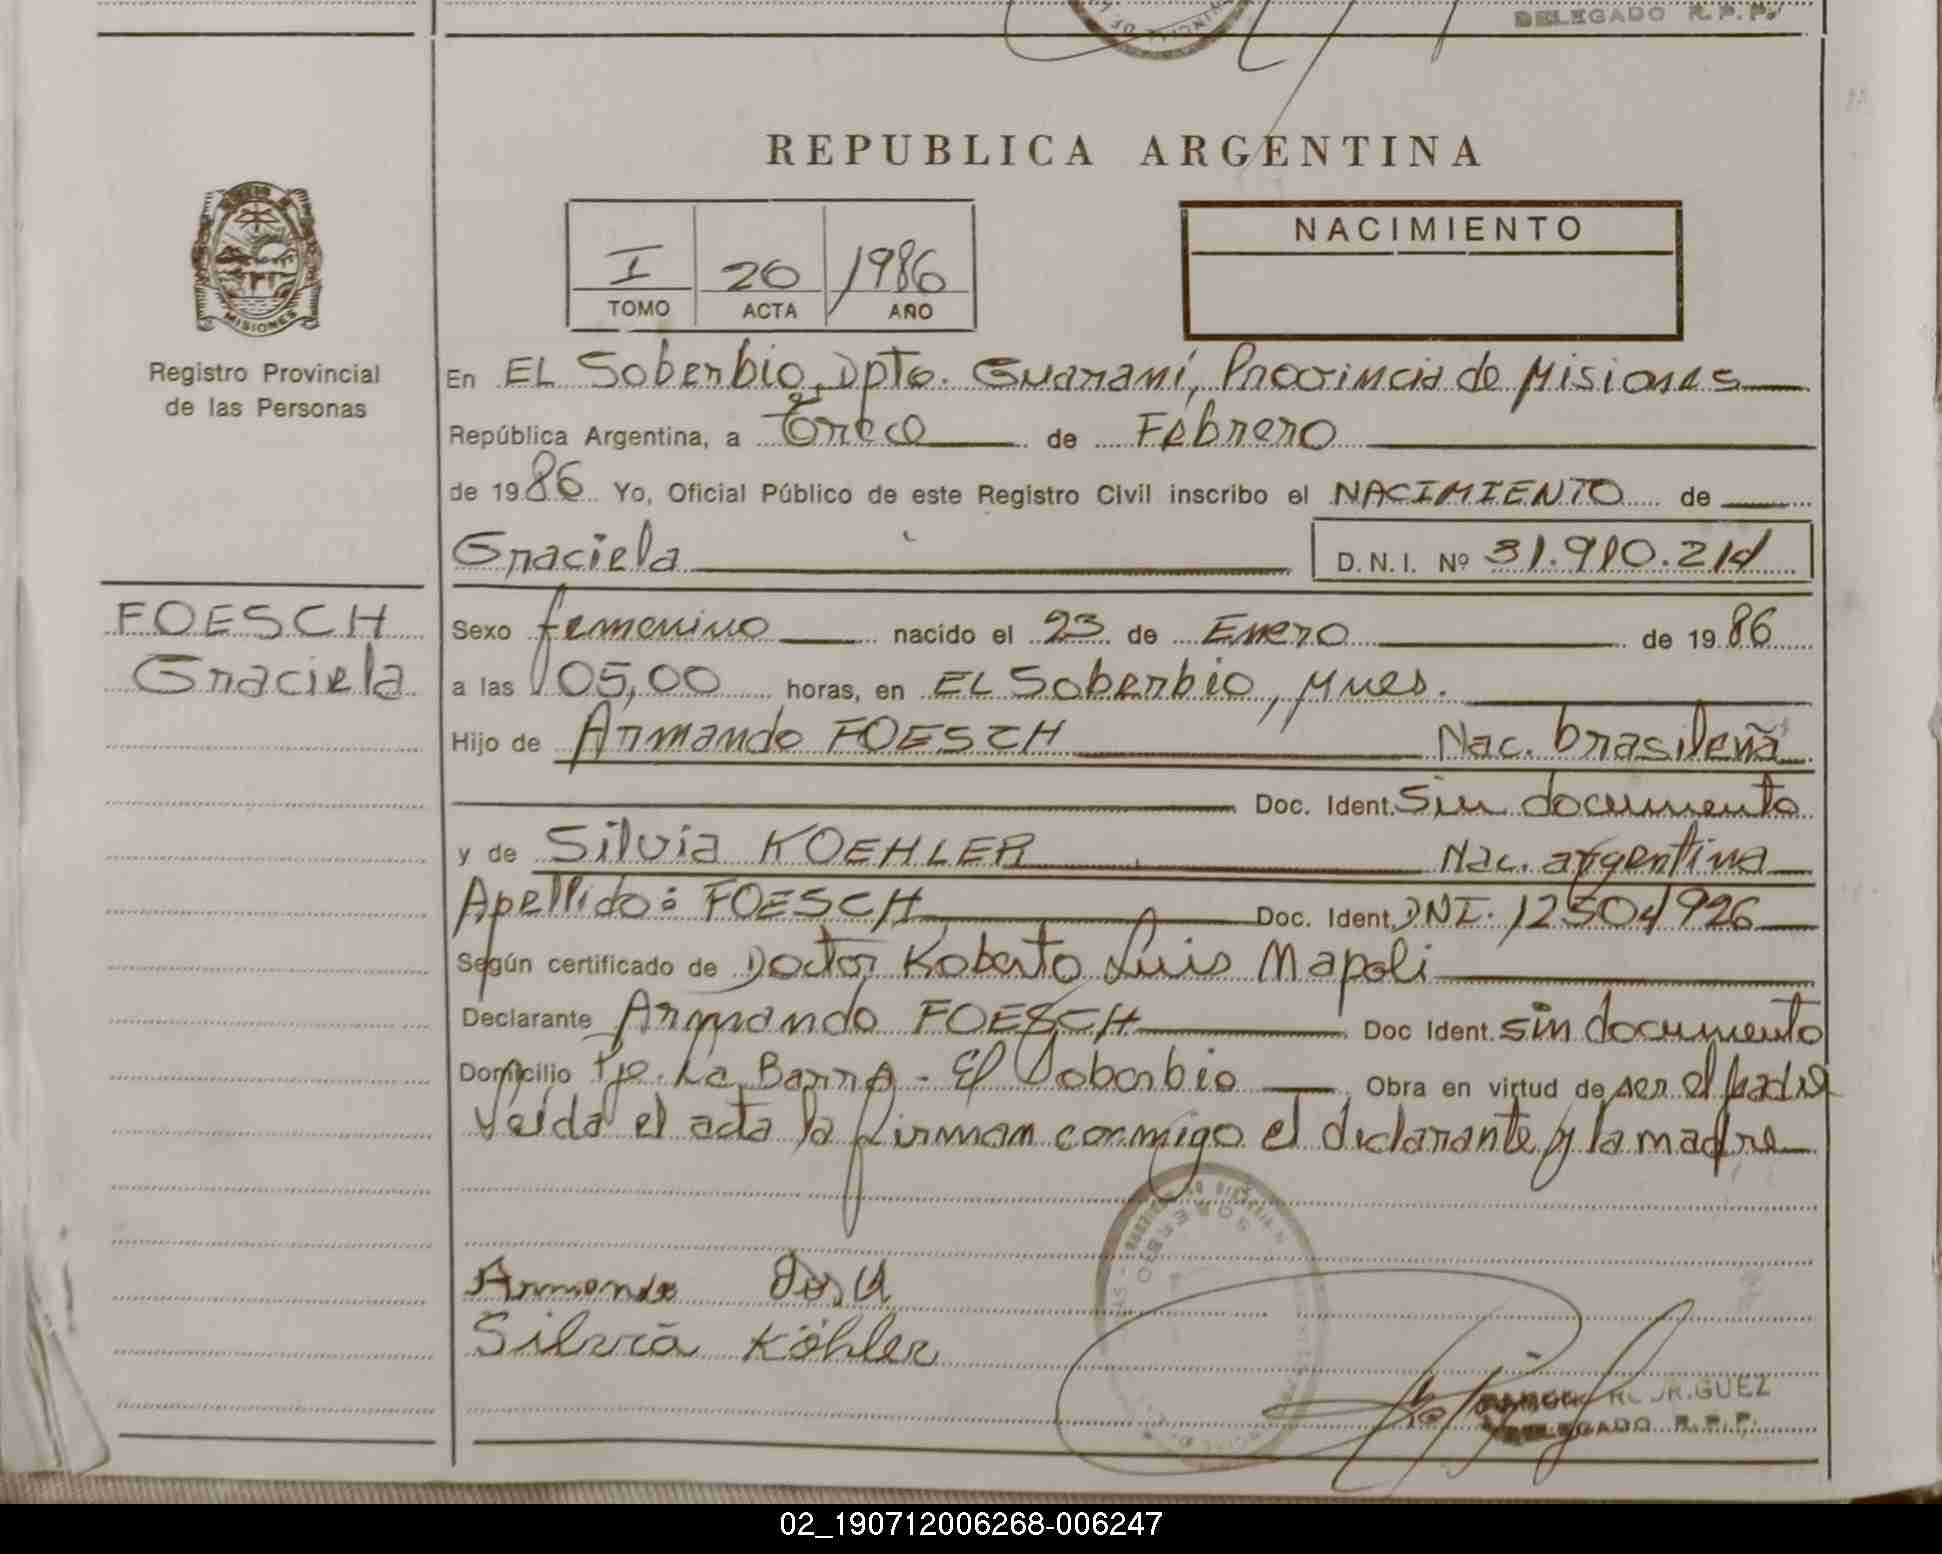 DELEGADO R.P.P.
REPUBLICA ARGENTINA
NACIMIENTO
I 20 1986
TOMO ACTA AÑO
MISIONES
Registro Provincial
de las Personas
En EL Soberbio, Dpto. Guaraní, Provincia de Misiones
República Argentina, a trece de Febrero
de 1986 Yo, Oficial Público de este Registro Civil inscribo el NACIMIENTO de
Graciela D.N.I. Nº 31.910.214
FOESCH
Graciela
Sexo femenino nacido el 23 de Enero de 1986
a las 05,00 horas, en EL Soberbio, Mnes.
Hijo de Armando FOESCH Nac. brasileña
Doc. Ident. Sin documento
y de Silvia KOEHLER Nac. argentina
Apellido: FOESCH Doc. Ident. DNI. 12504926
Según certificado de Doctor Roberto Luis Napoli
Declarante Armando FOESCH Doc Ident. sin documento
Domicilio Pje. La Barra - El Soberbio Obra en virtud de ser el padre
Leída el acta la firman conmigo el declarante y la madre
SOBERBIO
Armando
Silvia Köhler
RAMON RODRIGUEZ
DELEGADO R.P.P.
02_190712006268-006247